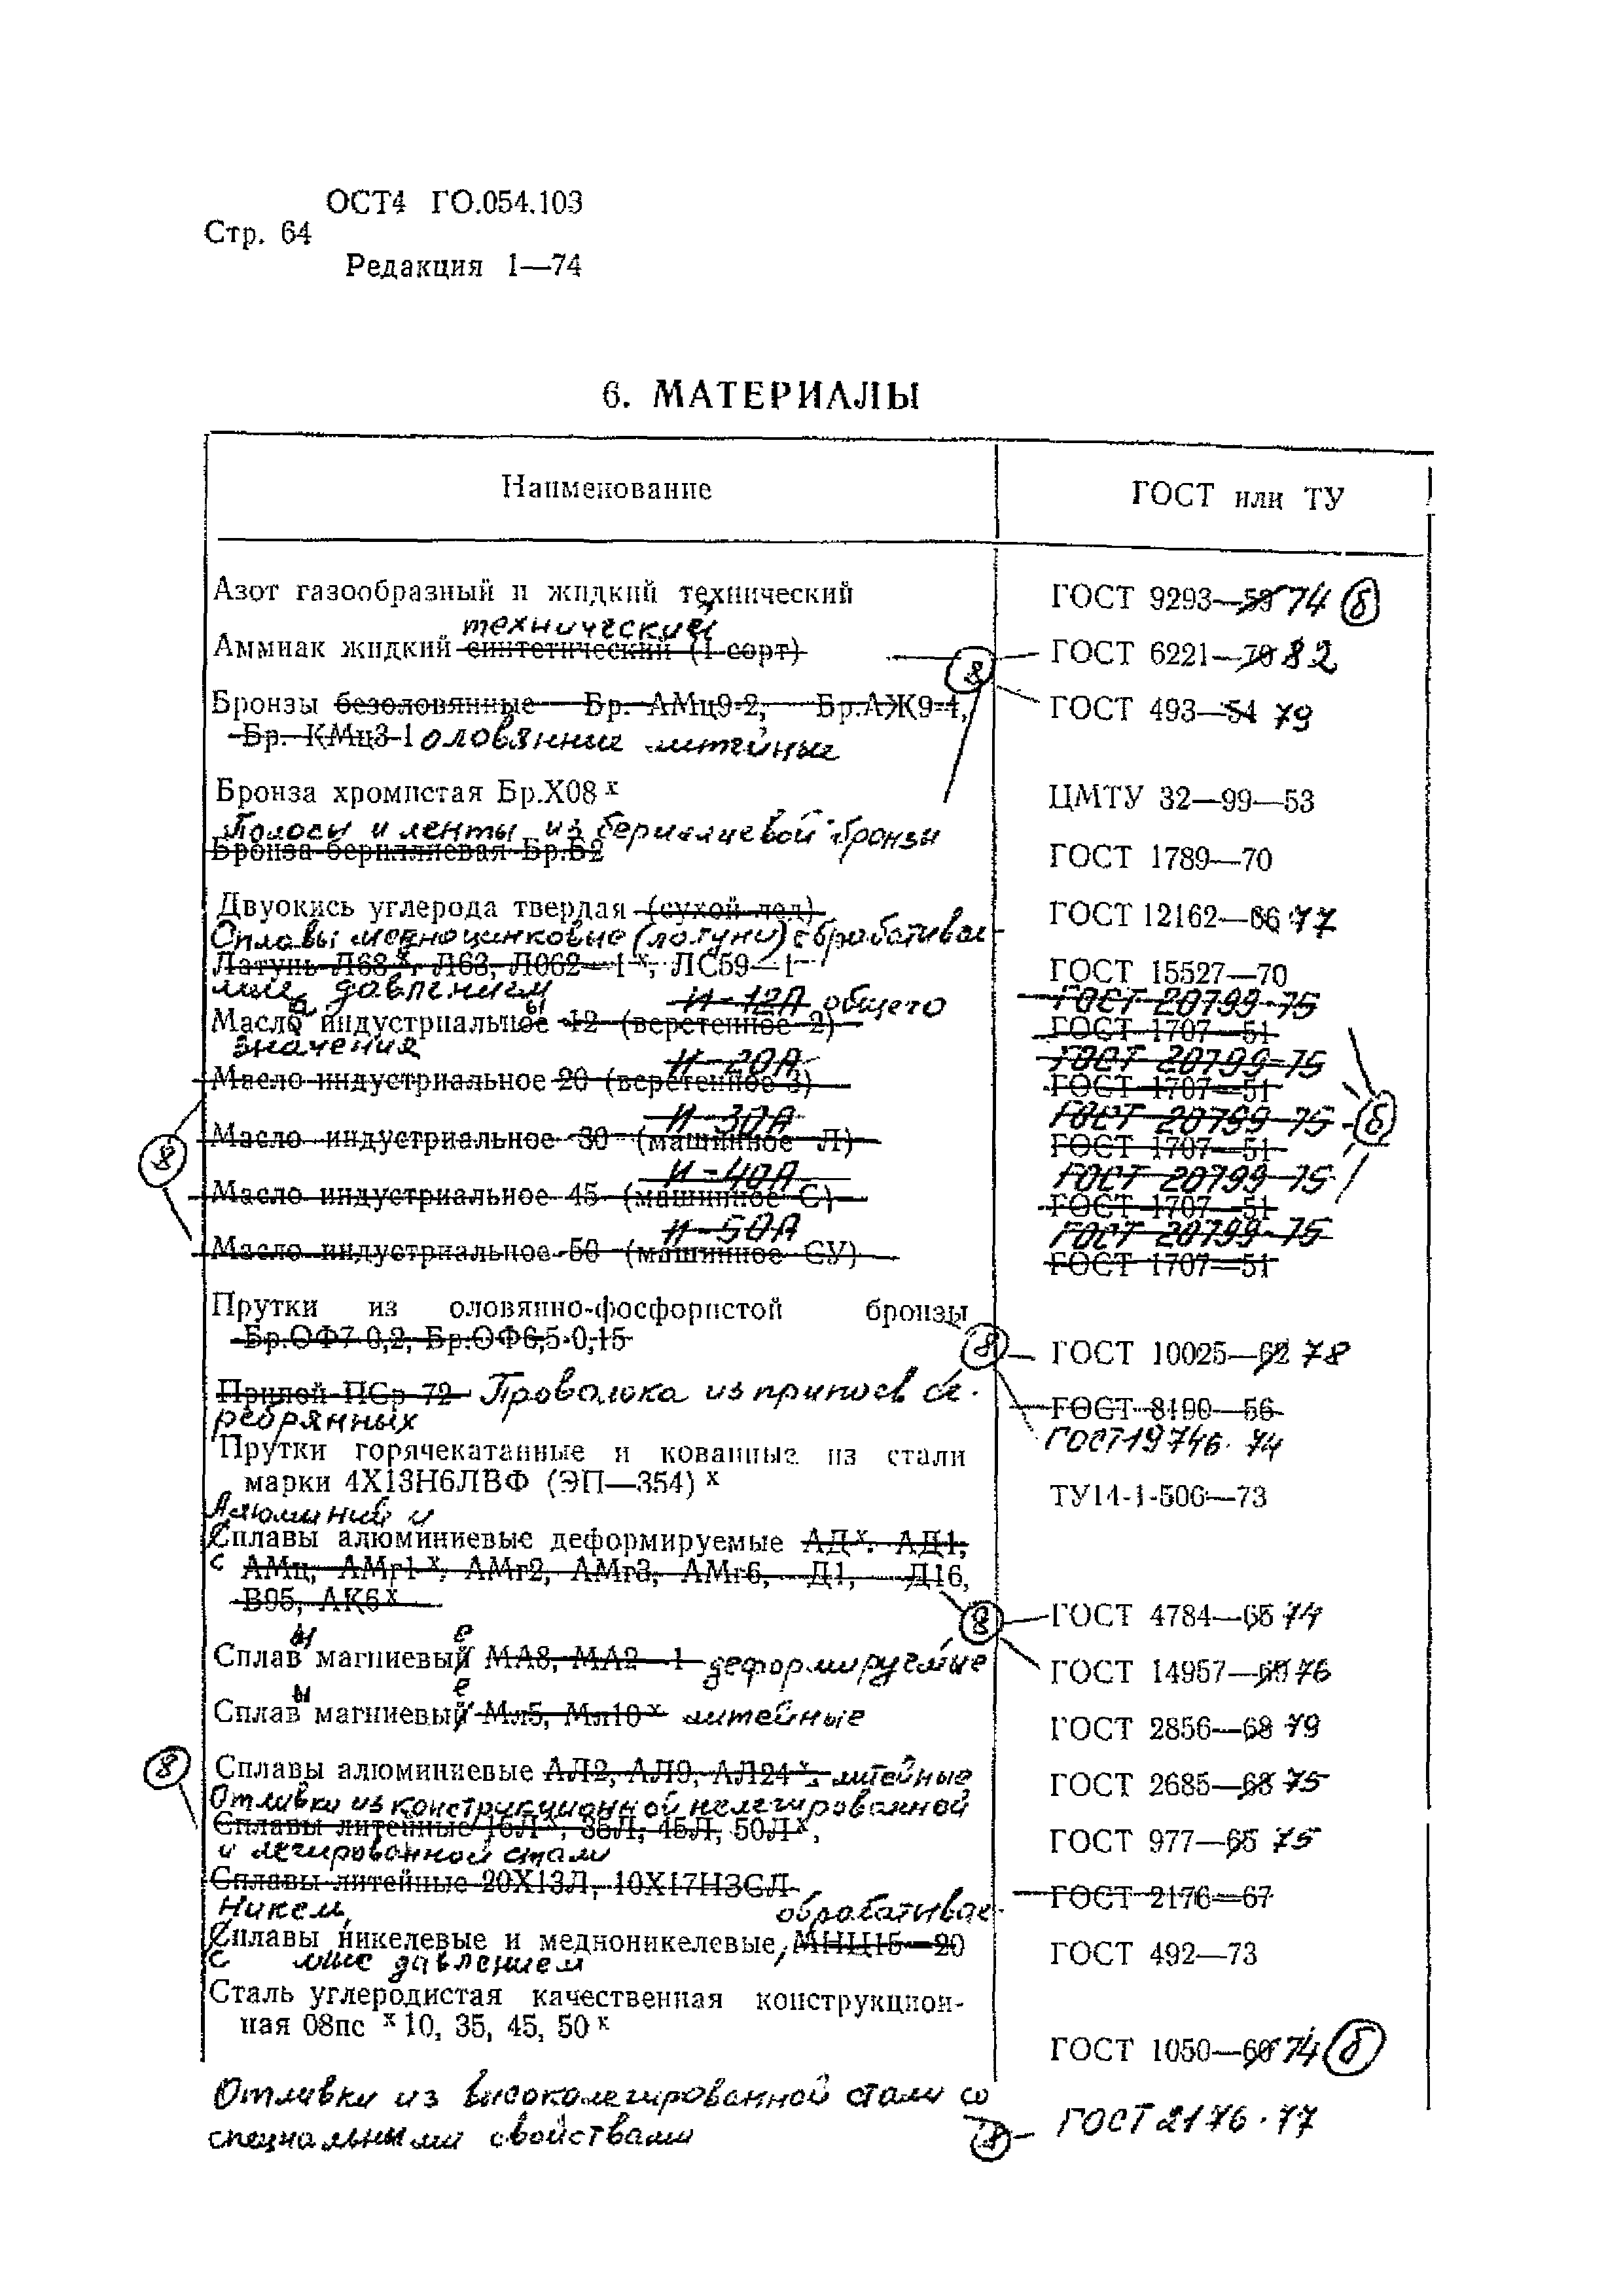 ОСТ4 ГО.054.103
Стр. 64
Редакция 1—74
6. МАТЕРИАЛЫ
Наименование ГОСТ или ТУ
Азот газообразный и жидкий технический ГОСТ 9293—59 74 (б)
технический
Аммиак жидкий синтетический (1 сорт) (8) ГОСТ 6221—70 82
Бронзы безоловянные Бр. АМц9-2, Бр.АЖ9-4, ГОСТ 493—54 79
Бр. КМц3-1 оловянные литейные
Бронза хромистая Бр.Х08 х ЦМТУ 32—99—53
Полосы и ленты из бериллиевой бронзы
Бронза бериллиевая Бр.Б2 ГОСТ 1789—70
Двуокись углерода твердая (сухой лед) ГОСТ 12162—66 77
Сплавы медноцинковые (латуни) обрабатывае-
Латунь Л68 х, Л63, Л062—1 х, ЛС59—1 ГОСТ 15527—70
мые давлением И-12А общего ГОСТ 20799-75
Масло а индустриальное ы 12 (веретенное 2) ГОСТ 1707—51
значения И-20А ГОСТ 20799-75
Масло индустриальное 20 (веретенное 3) ГОСТ 1707—51
И-30А ГОСТ 20799-75 (б)
Масло индустриальное 30 (машинное Л) ГОСТ 1707—51
(8) И-40А ГОСТ 20799-75
Масло индустриальное 45 (машинное С) ГОСТ 1707—51
И-50А ГОСТ 20799-75
Масло индустриальное 50 (машинное СУ) ГОСТ 1707—51
Прутки из оловянно-фосфористой бронзы
Бр.ОФ7-0,2, Бр.ОФ6,5-0,15 (8) ГОСТ 10025—62 78
Припой ПСр 72 Проволока из припоев се- ГОСТ 8190—56
ребрянных ГОСТ 19746-74
Прутки горячекатанные и кованные из стали
марки 4Х13Н6ЛВФ (ЭП—354) х ТУ14-1-506—73
Алюминий и
Сплавы алюминиевые деформируемые АД х, АД1,
с АМц, АМг1 х, АМг2, АМг3, АМг6, Д1, Д16,
В95, АК6 х (8) ГОСТ 4784—65 74
ы е
Сплав магниевый МА8, МА2—1 деформируемые ГОСТ 14957—69 76
ы е
Сплав магниевый Мл5, Мл10 х литейные ГОСТ 2856—68 79
(8) Сплавы алюминиевые АЛ2, АЛ9, АЛ24 х, литейные ГОСТ 2685—63 75
Отливки из конструкционной нелегированной
Сплавы литейные 15Л х, 35Л, 45Л, 50Л х, ГОСТ 977—65 75
и легированной стали
Сплавы литейные 20Х13Л, 10Х17Н3СЛ ГОСТ 2176—67
Никель, обрабатывае-
Сплавы никелевые и медноникелевые, МНЦ15—20 ГОСТ 492—73
с мые давлением
Сталь углеродистая качественная конструкцион-
ная 08пс х 10, 35, 45, 50 х ГОСТ 1050—60 74 (б)
Отливки из высоколегированной стали со
специальными свойствами (8) ГОСТ 2176-77